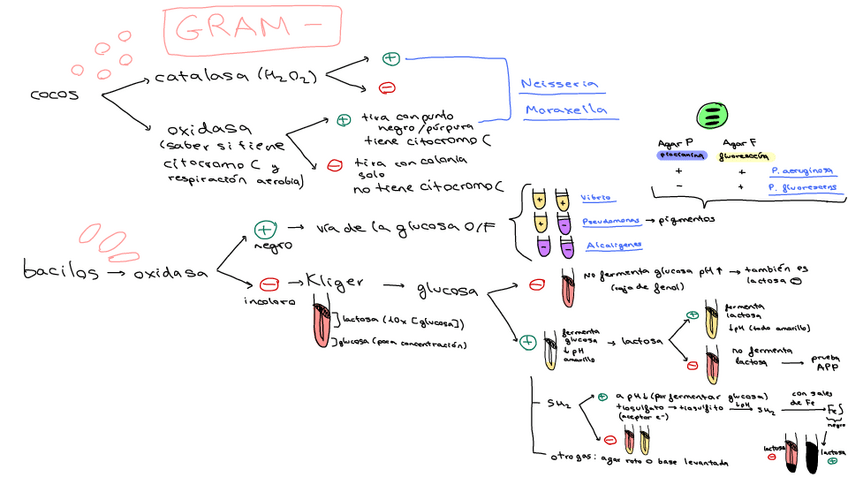 GRAM -
cocos
catalasa (H₂O₂)
+
-
Neisseria
Moraxella
oxidasa
(saber si tiene
citocromo C y
respiración aerobia)
+ tira con punto
negro/púrpura
tiene citocromo C
- tira con colonia
solo
no tiene citocromo C
Agar P Agar F
piocianina fluoresceína
+ + P. aeruginosa
- + P. fluorescens
bacilos → oxidasa
+
negro
→ vía de la glucosa O/F
+ + Vibrio
+ - Pseudomonas → pigmentos
- - Alcaligenes
-
incoloro
→ Kliger → glucosa
lactosa (10x [glucosa])
glucosa (poca concentración)
-
no fermenta glucosa pH↑ → también es
(rojo de fenol) lactosa -
+
fermenta
glucosa
↓ pH
amarillo
→ lactosa
+
fermenta
lactosa
↓pH (todo amarillo)
-
no fermenta
lactosa → prueba
APP
SH₂
+ a pH↓ (por fermentar glucosa)
tiosulfato → tiosulfito ↓pH→ SH₂ con sales de Fe→ FeS
(aceptor e⁻)
negro
-
lactosa
-
lactosa
+
otro gas: agar roto o base levantada